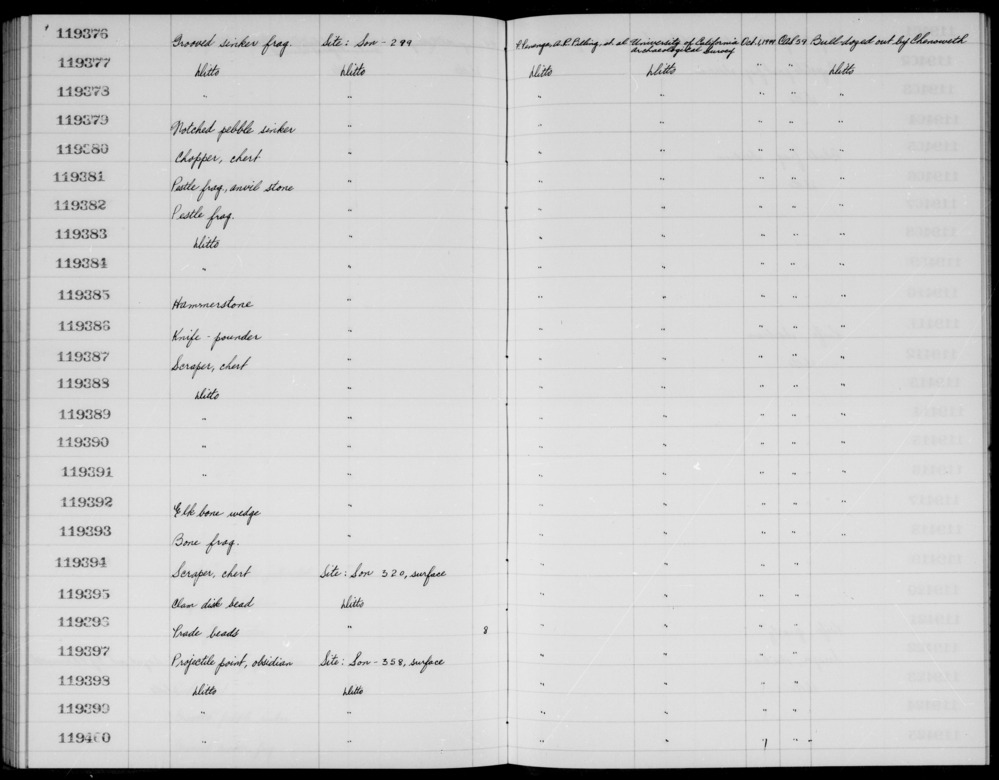 119376 Grooved sinker frag. Site: Son-299 A.R. Pilling, et al University of California Archaeological Survey Oct. 1, 1949 Bull-dozed out by Chenoweth
119377 Ditto Ditto Ditto Ditto " " Ditto
119378 " " " " " " "
119379 Notched pebble sinker " " " " " "
119380 Chopper, chert " " " " " "
119381 Pestle frag., anvil stone " " " " " "
119382 Pestle frag. " " " " " "
119383 Ditto " " " " " "
119384 " " " " " " "
119385 Hammerstone " " " " " "
119386 Knife - pounder " " " " " "
119387 Scraper, chert " " " " " "
119388 Ditto " " " " " "
119389 " " " " " " "
119390 " " " " " " "
119391 " " " " " " "
119392 Elk bone wedge " " " " " "
119393 Bone frag. " " " " " "
119394 Scraper, chert Site: Son 320, surface " " " "
119395 Clam disk bead Ditto " " " "
119396 Trade beads " 8 " " " "
119397 Projectile point, obsidian Site: Son-358, surface " " " "
119398 Ditto Ditto " " " "
119399 " " " " " "
119400 " " " " "